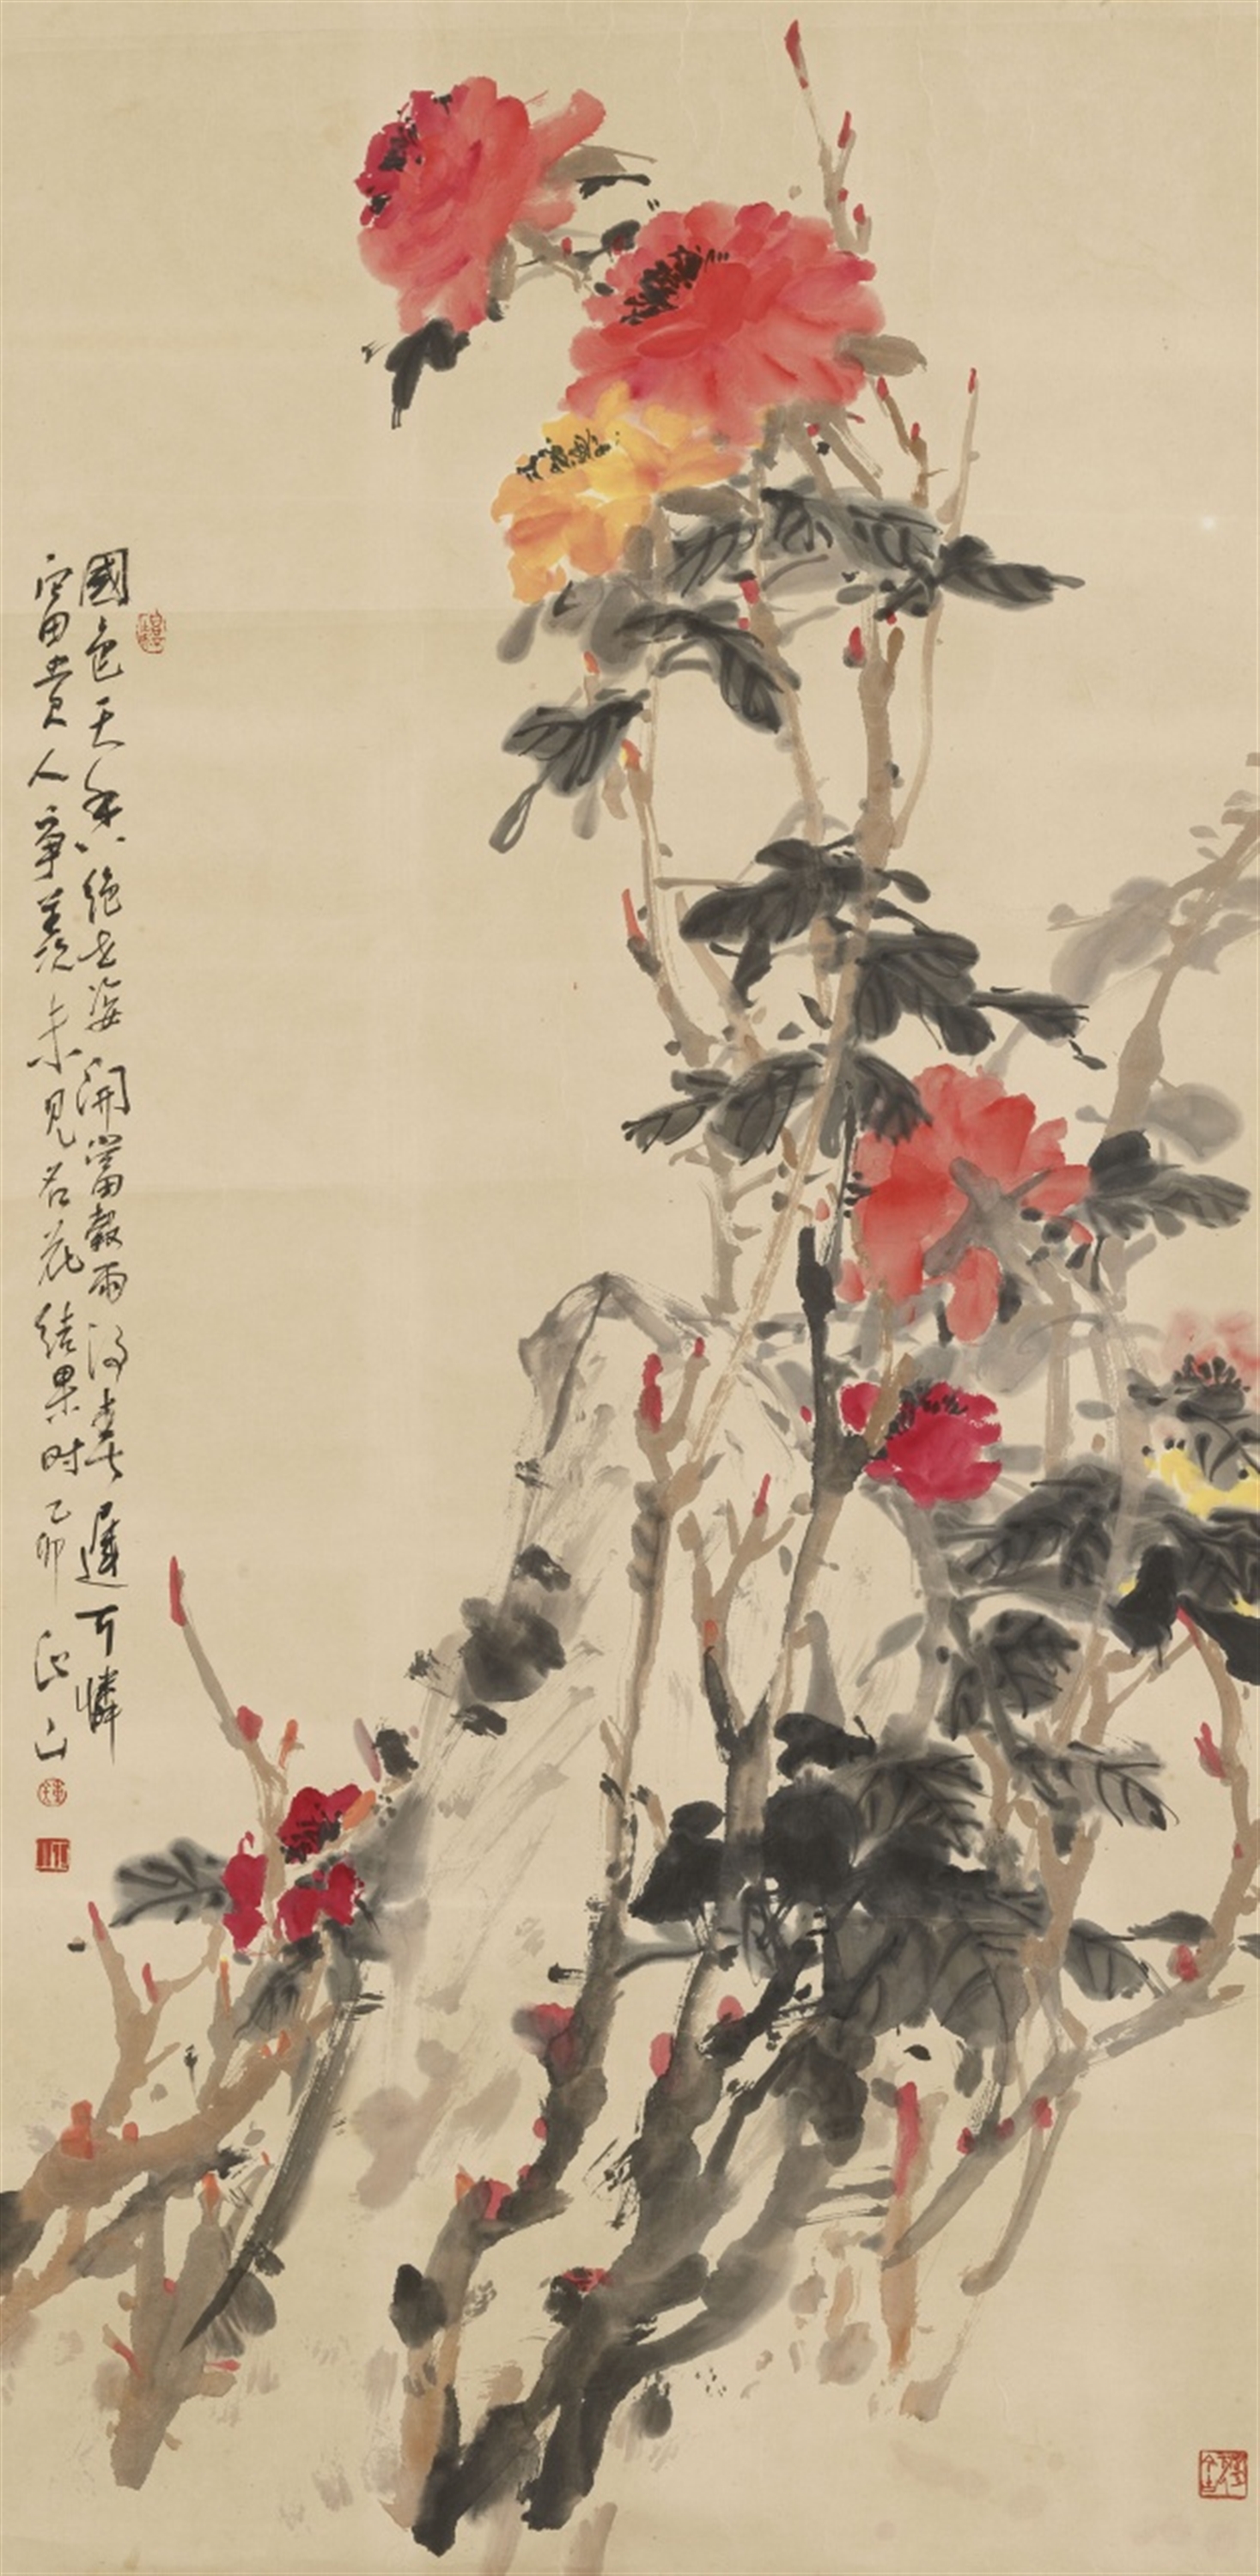 國色天香絕世姿開當穀雨得春遲可憐
富貴人爭羨未見名花結果时乙卯